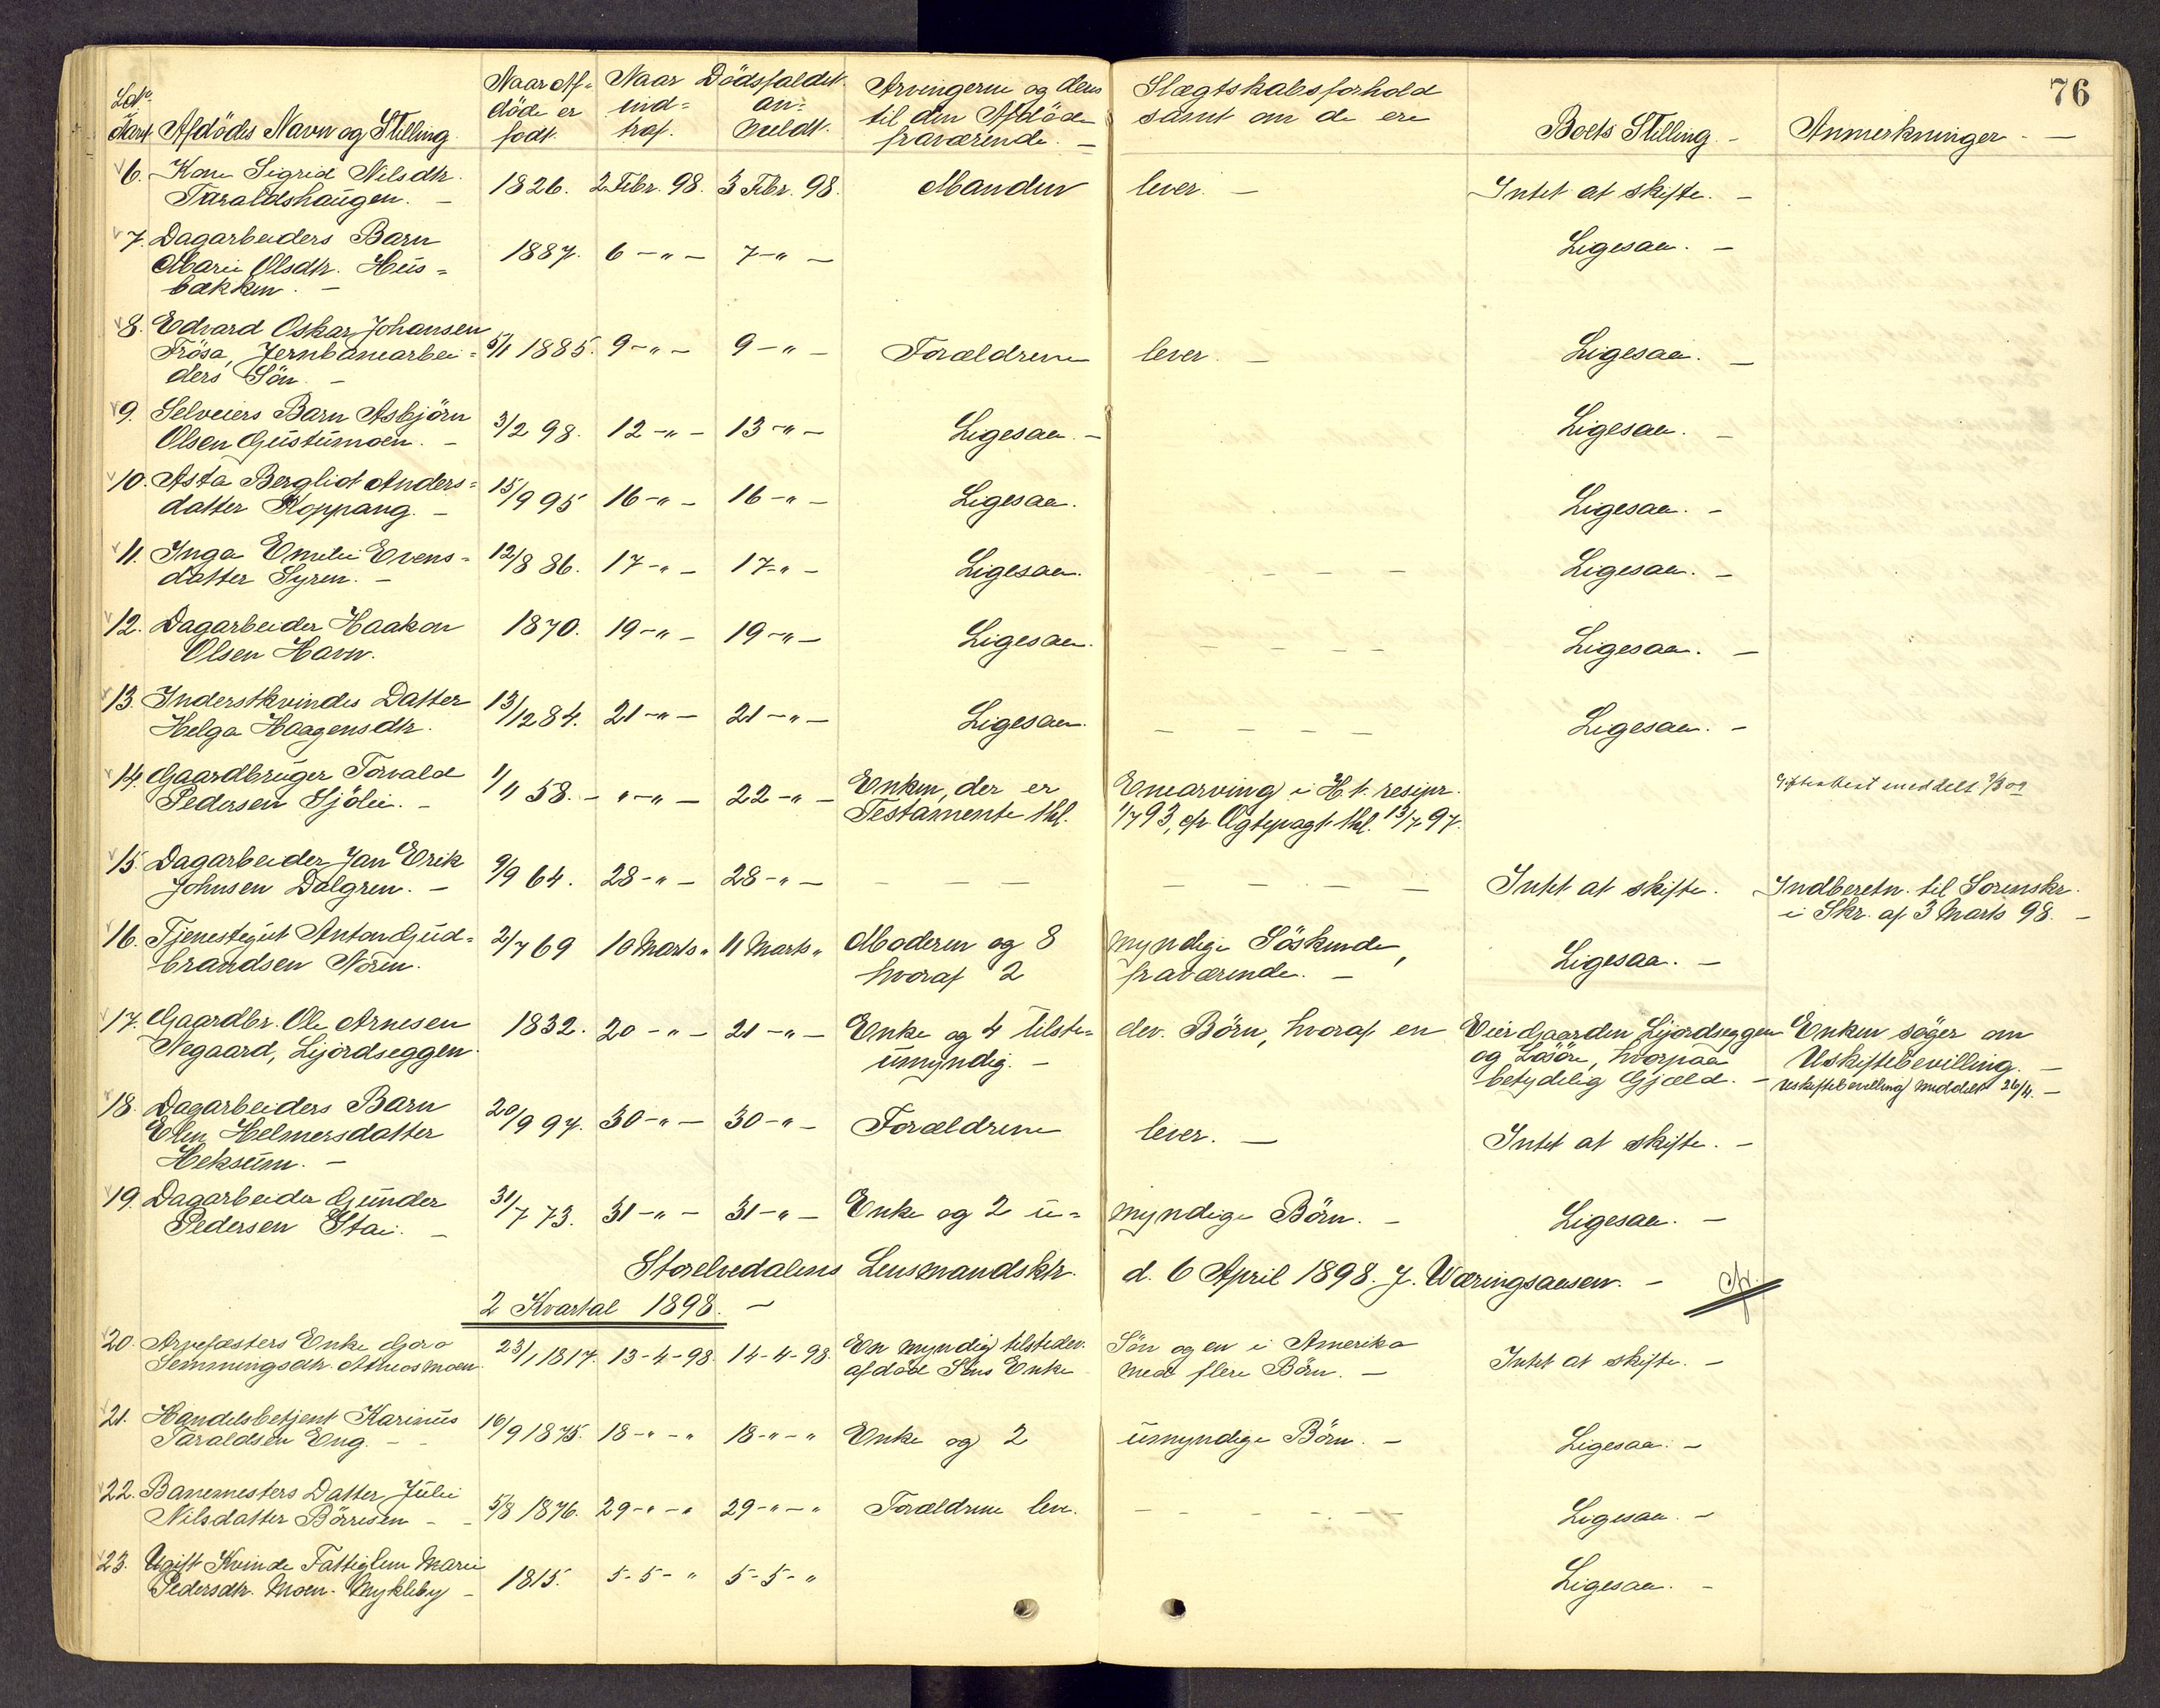 76
Naar Af= Naar Dödsfaldet Arvingerne og deres Slægtskabsforhold
LNo. döde er ind= an= til den Afdöde samt om de ere
Aaret Afdödes Navn og Stilling. født. traf. meldt. fraværende. — Boets Stilling. — Anmerkninger. —
6. Kone Sigrid Nilsdtr. 1826. 2 Febr. 98. 3 Febr. 98. Manden lever. — Intet at skifte. —
Taraldshaugen. —
7. Dagarbeiders Barn 1887. 6 — " — 7 — " — Ligesaa. —
Marie Olsdtr. Hus=
bækken. —
8. Edvard Oskar Johansen
Frösa, Jernbanearbei= 5/1 1885. 9 — " — 9 — " — Forældrene lever. — Ligesaa. —
ders Sön. —
9. Selveiers Barn Asbjörn 3/2 98. 12 — " — 13 — " — Ligesaa. — Ligesaa. —
Olsen Gustumoen. —
10. Asta Bergliot Anders= 15/9 95 16 — " — 16 — " — Ligesaa. Ligesaa. —
datter Koppang. —
11. Inga Emilie Evens= 12/8 86. 17 — " — 17 — " — Ligesaa. — — — — Ligesaa. —
datter Syren. —
12. Dagarbeider Haakon 1870. 19 — " — 19 — " — Ligesaa. — — — — Ligesaa. —
Olsen Havn.
13. Inderstkvindes Datter 13/12 84. 21 — " — 21 — " — Ligesaa. — — — — Ligesaa. —
Helga Haagensdtr.
14. Gaardbruger Torvald 1/1 58. — " — " — 22 — " — Enken, der er Enearving i H. t. resipr.
Pedersen Sjölie. — Testamente thl. 1/7 93, cfr. Ægtepagt thl. 13/7 97.
meddelt
15. Dagarbeider Jan Erik 9/9 64. 28 — " — 28 — " — — — — — — — — Intet at skifte. Indberetn. til Sorenskr.
Johnsen Dalgren. — i Skr. af 3 Marts 98. —
16. Tjenestegut Anton Gud= 2/7 69 10 Marts " 11 Marts " Moderen og 8 myndige Söskende, Ligesaa. —
brandsen Nören. hvoraf 2 fraværende. —
17. Gaardbr. Ole Arnesen 1832. 20 — " — 21 — " — Enke og 4 tilste= dev. Börn, hvoraf en Eier Gaarden Lijordseggen Enken söger om
Negaard, Lijordseggen. umyndig. — og Lösöre, hvorpaa Uskiftebevilling. —
betydelig Gjæld. — Uskiftebevilling meddelt 26/4. —
18. Dagarbeiders Barn 20/9 97. 30 — " — 30 — " — Forældrene lever. — Intet at skifte. —
Elen Helmersdatter
Heksum. —
19. Dagarbeider Gunder 31/7 73. 31 — " — 31 — " — Enke og 2 u= myndige Börn. — Ligesaa. —
Pedersen Stai. —
Storelvedalens Lensmandsktr. d. 6 April 1898. J. Wæringsaasen. —
2 Kvartal 1898. —
20. Arvefæsters Enke Goro 23/1 1817. 13-4-98. 14-4-98. En myndig tilstedev. Sön og en i Amerika Intet at skifte. —
Semmingsdtr. afdöd Söns Enke med flere Börn. —
21. Handelsbetjent Karinus 16/9 1875. 18 - " - " 18 - " - " Enke og 2 umyndige Börn. — Ligesaa. —
Taraldsen Eng. —
22. Banemesters Datter Julie 5/8 1876. 29 - " - " 29 - " - " Forældrene lev. — — — — — Ligesaa. —
Nilsdatter Börresen — —
23. Ugift Kvinde Fattiglem Marie 1815. 5-5- " 5-5- " Ligesaa. —
Pedersdtr. Moen. Mykleby —